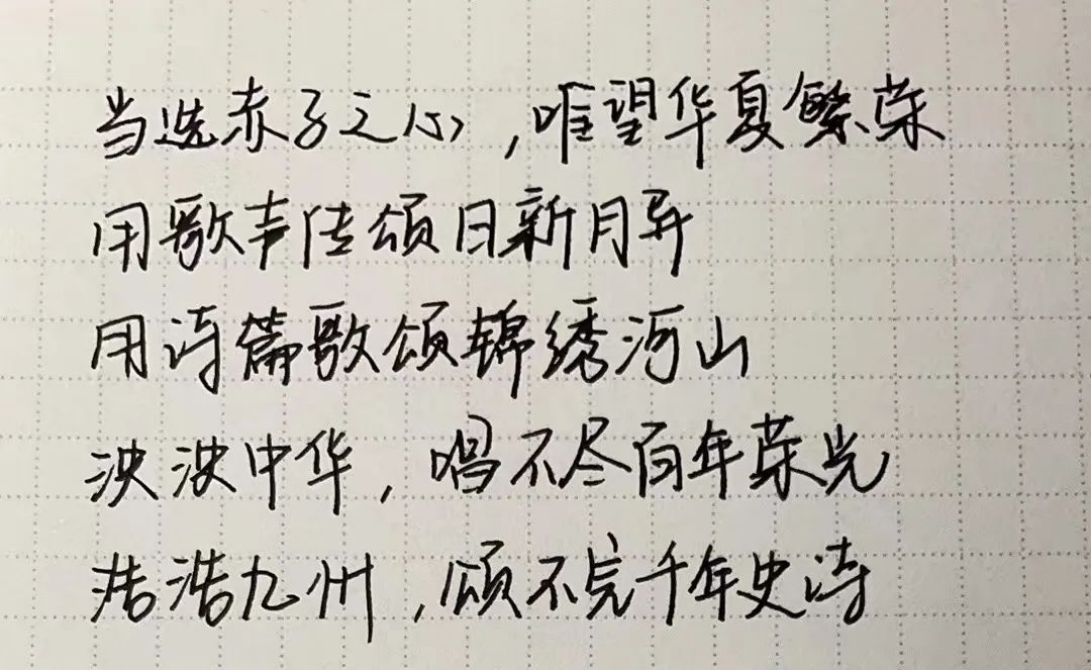 当选赤子之心,唯望华夏繁荣
用歌声传颂日新月异
用诗篇歌颂锦绣河山
泱泱中华,唱不尽百年荣光
浩浩九州,颂不完千年史诗